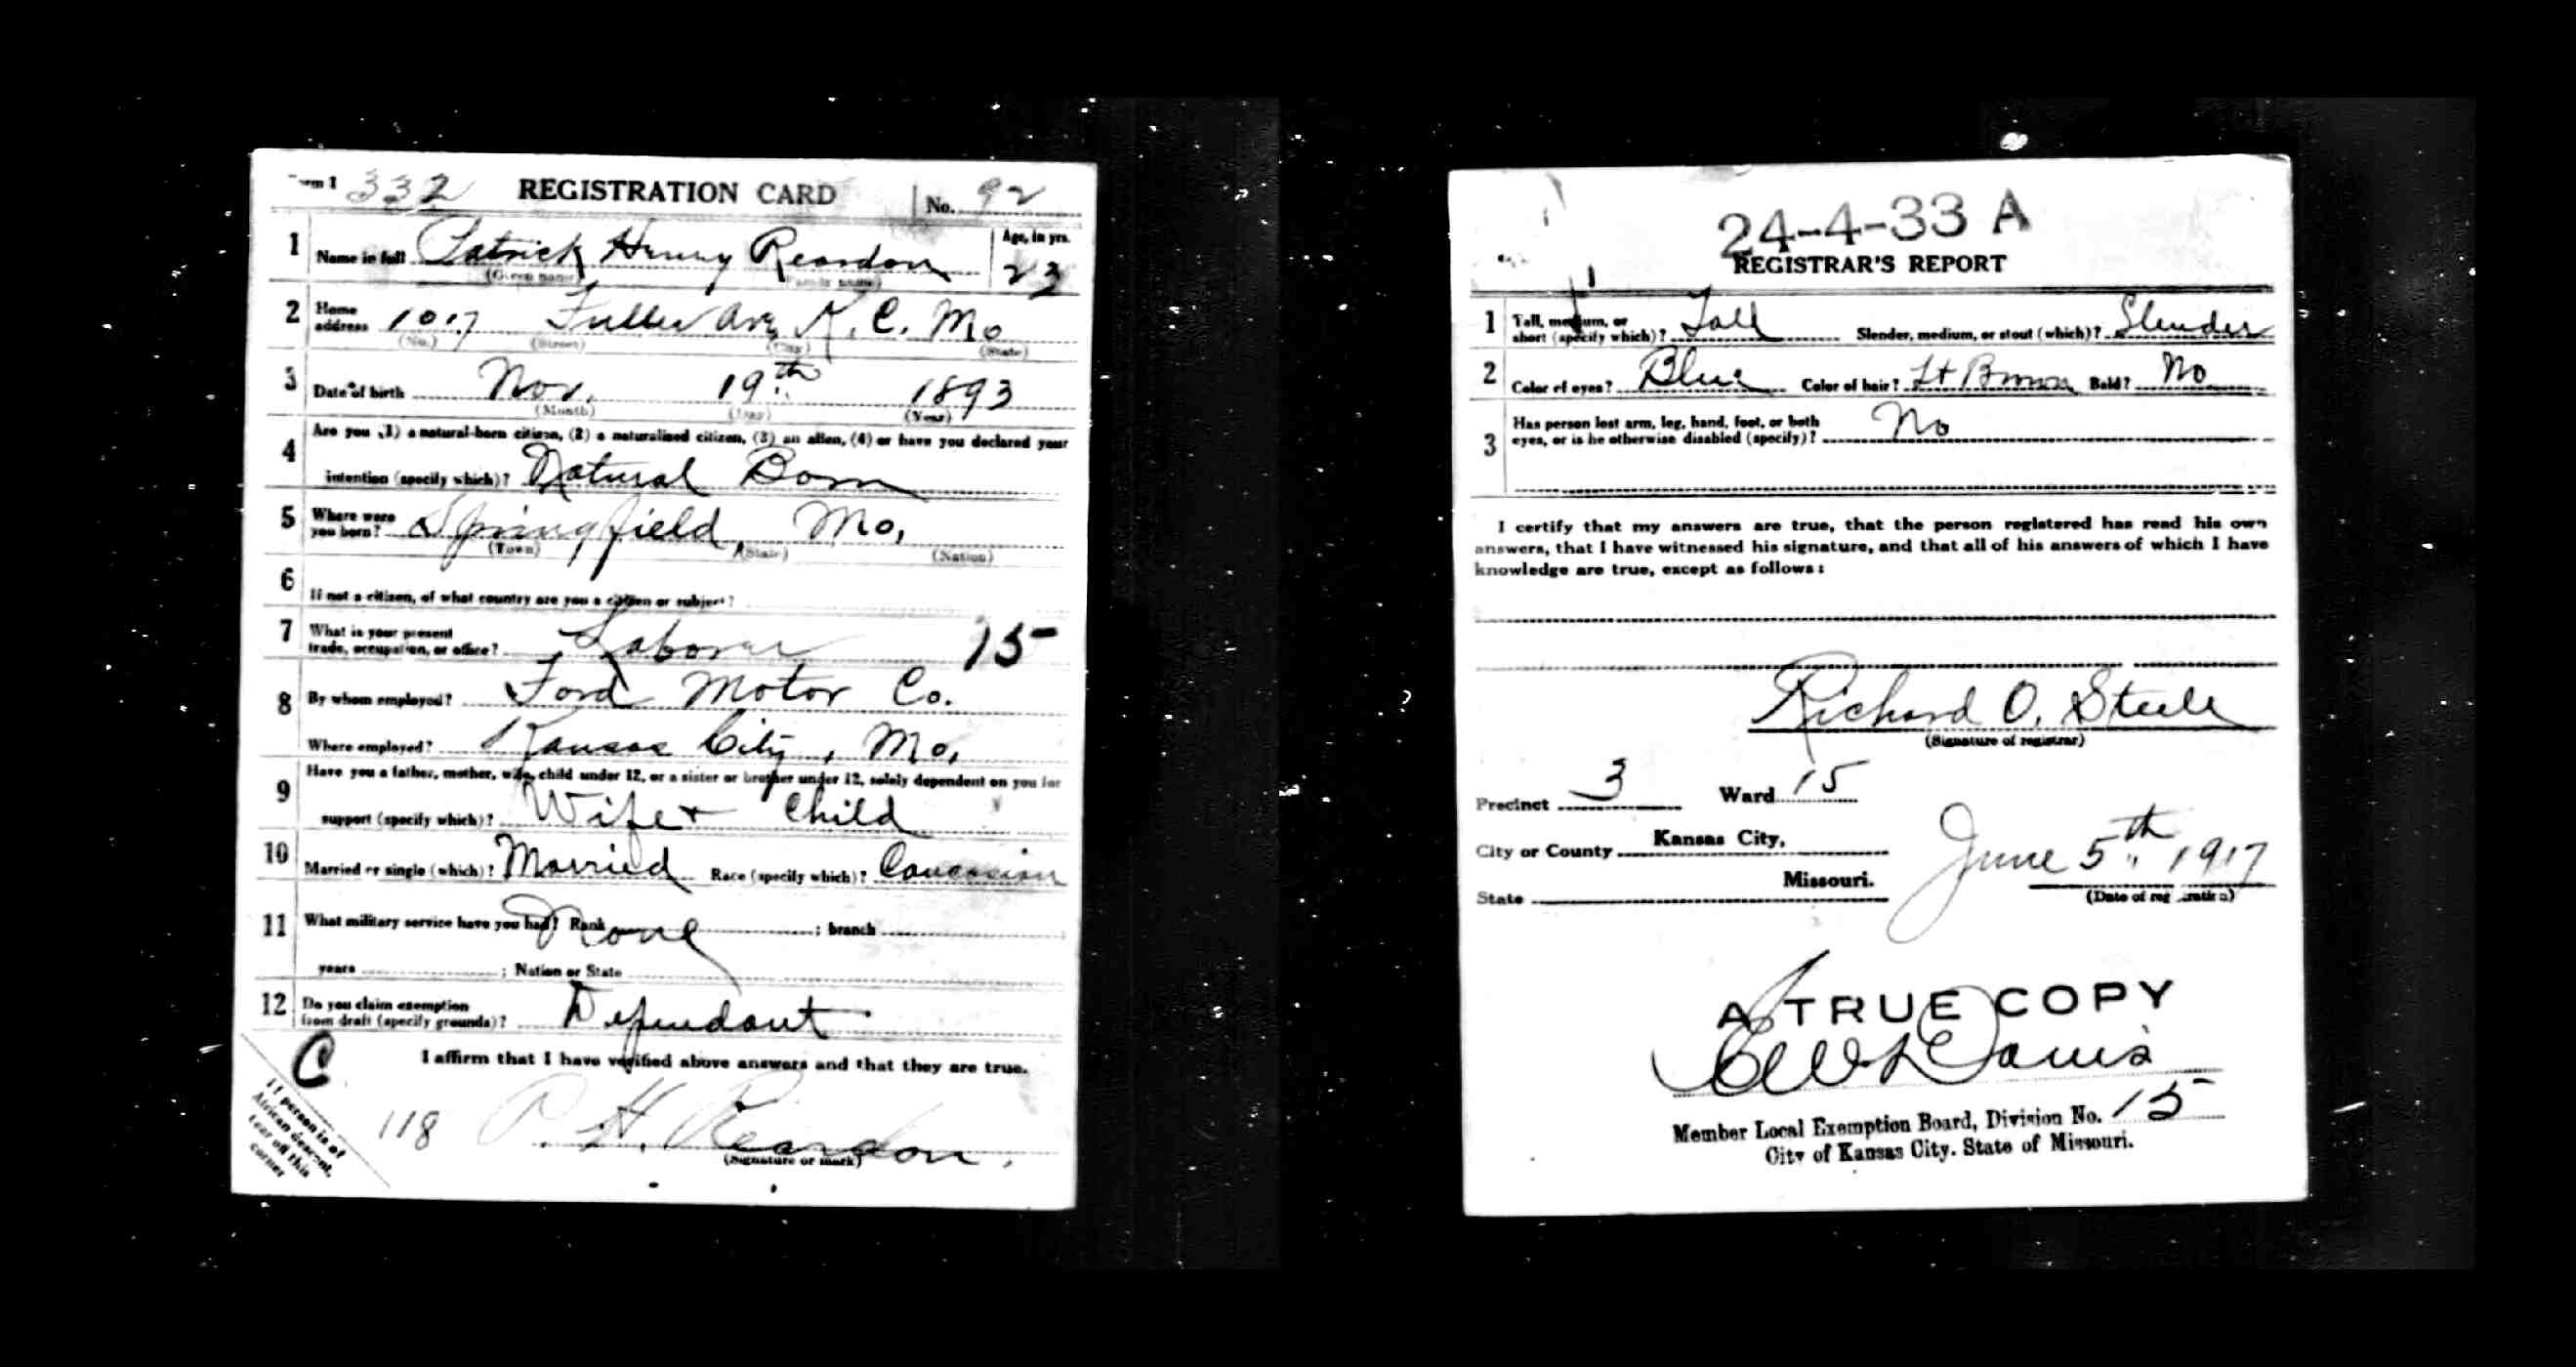 Form 1 332 REGISTRATION CARD No. 92
1 Name in full Patrick Henry Reardon Age, in yrs. 23
(Given name) (Family name)
2 Home address 1017 Fuller Ave K. C. Mo
(No.) (Street) (City) (State)
3 Date of birth Nov. 19th 1893
(Month) (Day) (Year)
4 Are you (1) a natural-born citizen, (2) a naturalized citizen, (3) an alien, (4) or have you declared your
intention (specify which)? Natural Born
5 Where were you born? Springfield, Mo,
(Town) (State) (Nation)
6 If not a citizen, of what country are you a citizen or subject?
7 What is your present
trade, occupation, or office? Laborer 15
8 By whom employed? Ford Motor Co.
Where employed? Kansas City, Mo,
9 Have you a father, mother, wife, child under 12, or a sister or brother under 12, solely dependent on you for
support (specify which)? Wife + Child
10 Married or single (which)? Married Race (specify which)? Caucasian
11 What military service have you had? Rank None ; branch
years ; Nation or State
12 Do you claim exemption
from draft (specify grounds)? Dependant
I affirm that I have verified above answers and that they are true.
C
If person is of
African descent,
tear off this
corner
118 P. H. Reardon.
(Signature or mark)
24-4-33 A
REGISTRAR'S REPORT
1 Tall, medium, or
short (specify which)? Tall Slender, medium, or stout (which)? Slender
2 Color of eyes? Blue Color of hair? Lt Brown Bald? No
3 Has person lost arm, leg, hand, foot, or both
eyes, or is he otherwise disabled (specify)? No
I certify that my answers are true, that the person registered has read his own
answers, that I have witnessed his signature, and that all of his answers of which I have
knowledge are true, except as follows:
Richard O. Steele
(Signature of registrar)
Precinct 3 Ward 15
City or County Kansas City,
State Missouri.
June 5th, 1917
(Date of registration)
A TRUE COPY
Davis
Member Local Exemption Board, Division No. 15
City of Kansas City. State of Missouri.